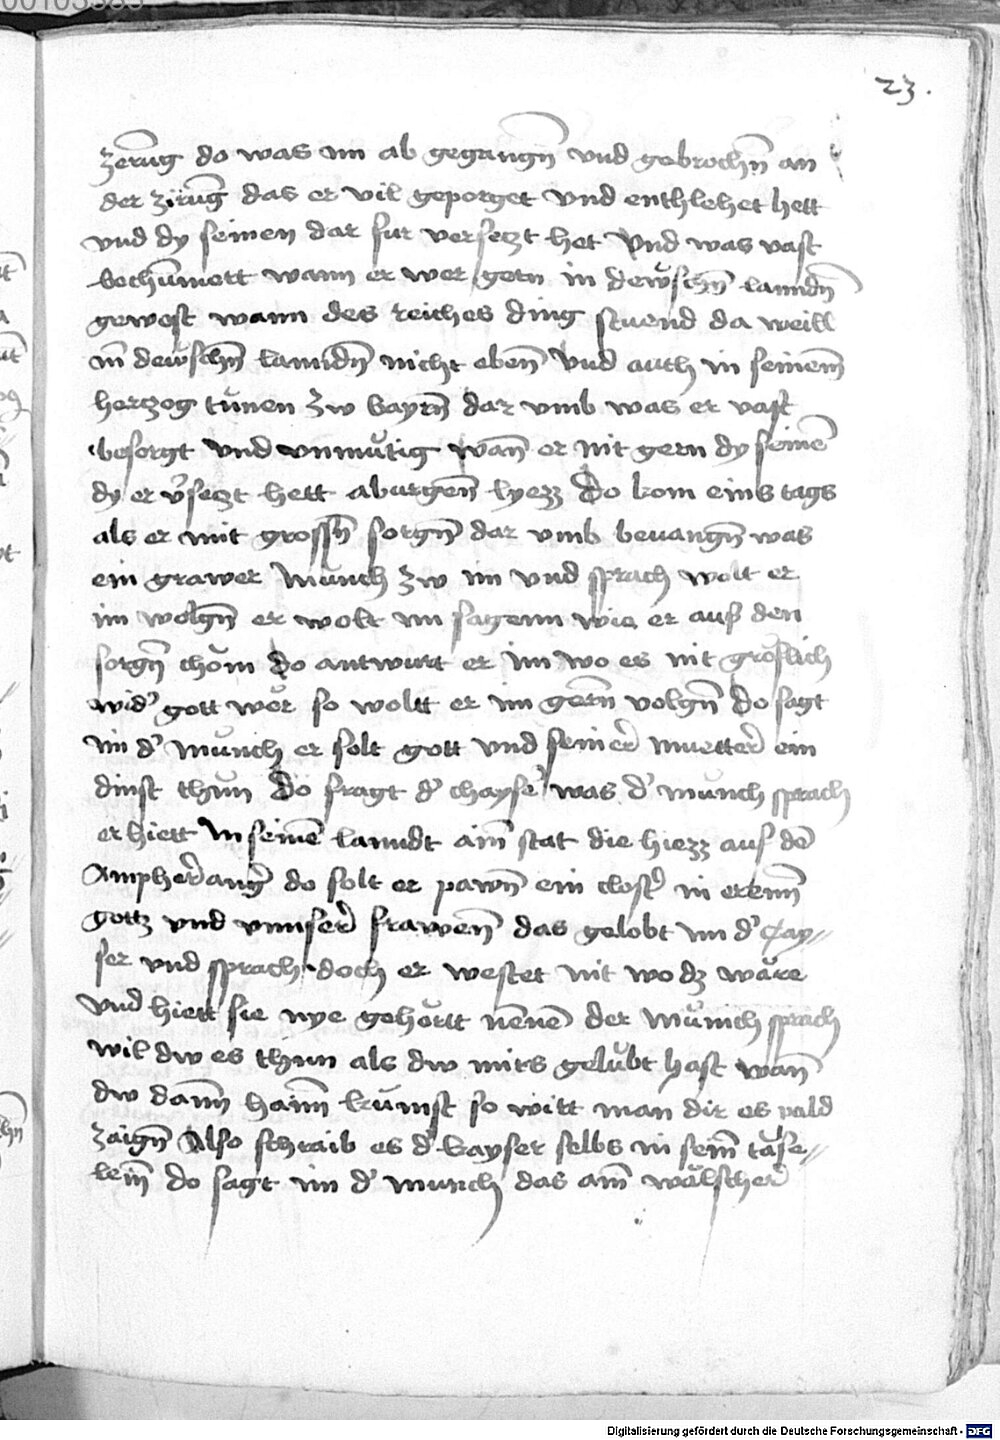 23.
zerūg do was im ab gegangn̄ vnd gebrochn̄ an
der zirūg das er vil geporget vnd enthlehet hett
vnd dy seinen dar fur versetzt het vnd was vast
bechūmett wann er wer gern in dewschn̄ lanndn̄
gewest wann des reiches ding stuend da weill
in dewschn̄ lanndn̄ nicht ebenn̄ vnd auch in seinem̄
hertzog tumen zw bayrn̄ dar vmb was er vast
besorgt vnd vnmůtig wan̄ er nit gern dy seinē
dy er v̓setzt hett aburgen̄ lyezz Do kom eins tags
als er mit grossn̄ sorgn̄ dar vmb beuangn̄ was
ein grawer Münch zw im vnd sprach wolt er
im volgn̄ er wolt im sagenn wie er aus den
sorgn̄ chöm do antwurt er im wo es nit gröslich
wid̓ gott wer so woltt er im gern̄ volgn̄ do sagt
im d̓ Münch er solt gott vnd seiner̄ muetter̄ ein
dinst thun do fragt d̓ chayser̓ was d̓ münch sprach
er hiett In seinē lanndt aim̄ stat die hiezz auf dē
Ampher̄ang̓ do solt er pawn̄ ein closter̓ in erenn̄
gottz vnd vnnser̄ frawen̄ das gelobt im d̓ chay//
ser vnd sprach doch er westet nit wo dz wäre
vnd hiett sie nye gehörtt nēnē der Münich sprach
wil dw es thun als dw mirs gelübt hast wan̄
dw dann̄ haim̄ kumst so wirt man dir es pald
zaign̄ Also schraib es d̓ kayser selbs in seim̄ täfe//
lein̄ do sagt im d̓ munch das aim̄ wälscher̄
Digitalisierung gefördert durch die Deutsche Forschungsgemeinschaft - DFG